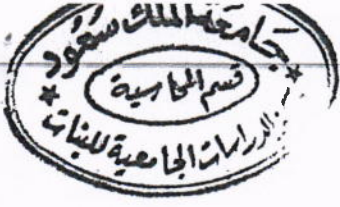 جامعة الملك سعود
قسم المحاسبة
الدراسات الجامعية للبنات